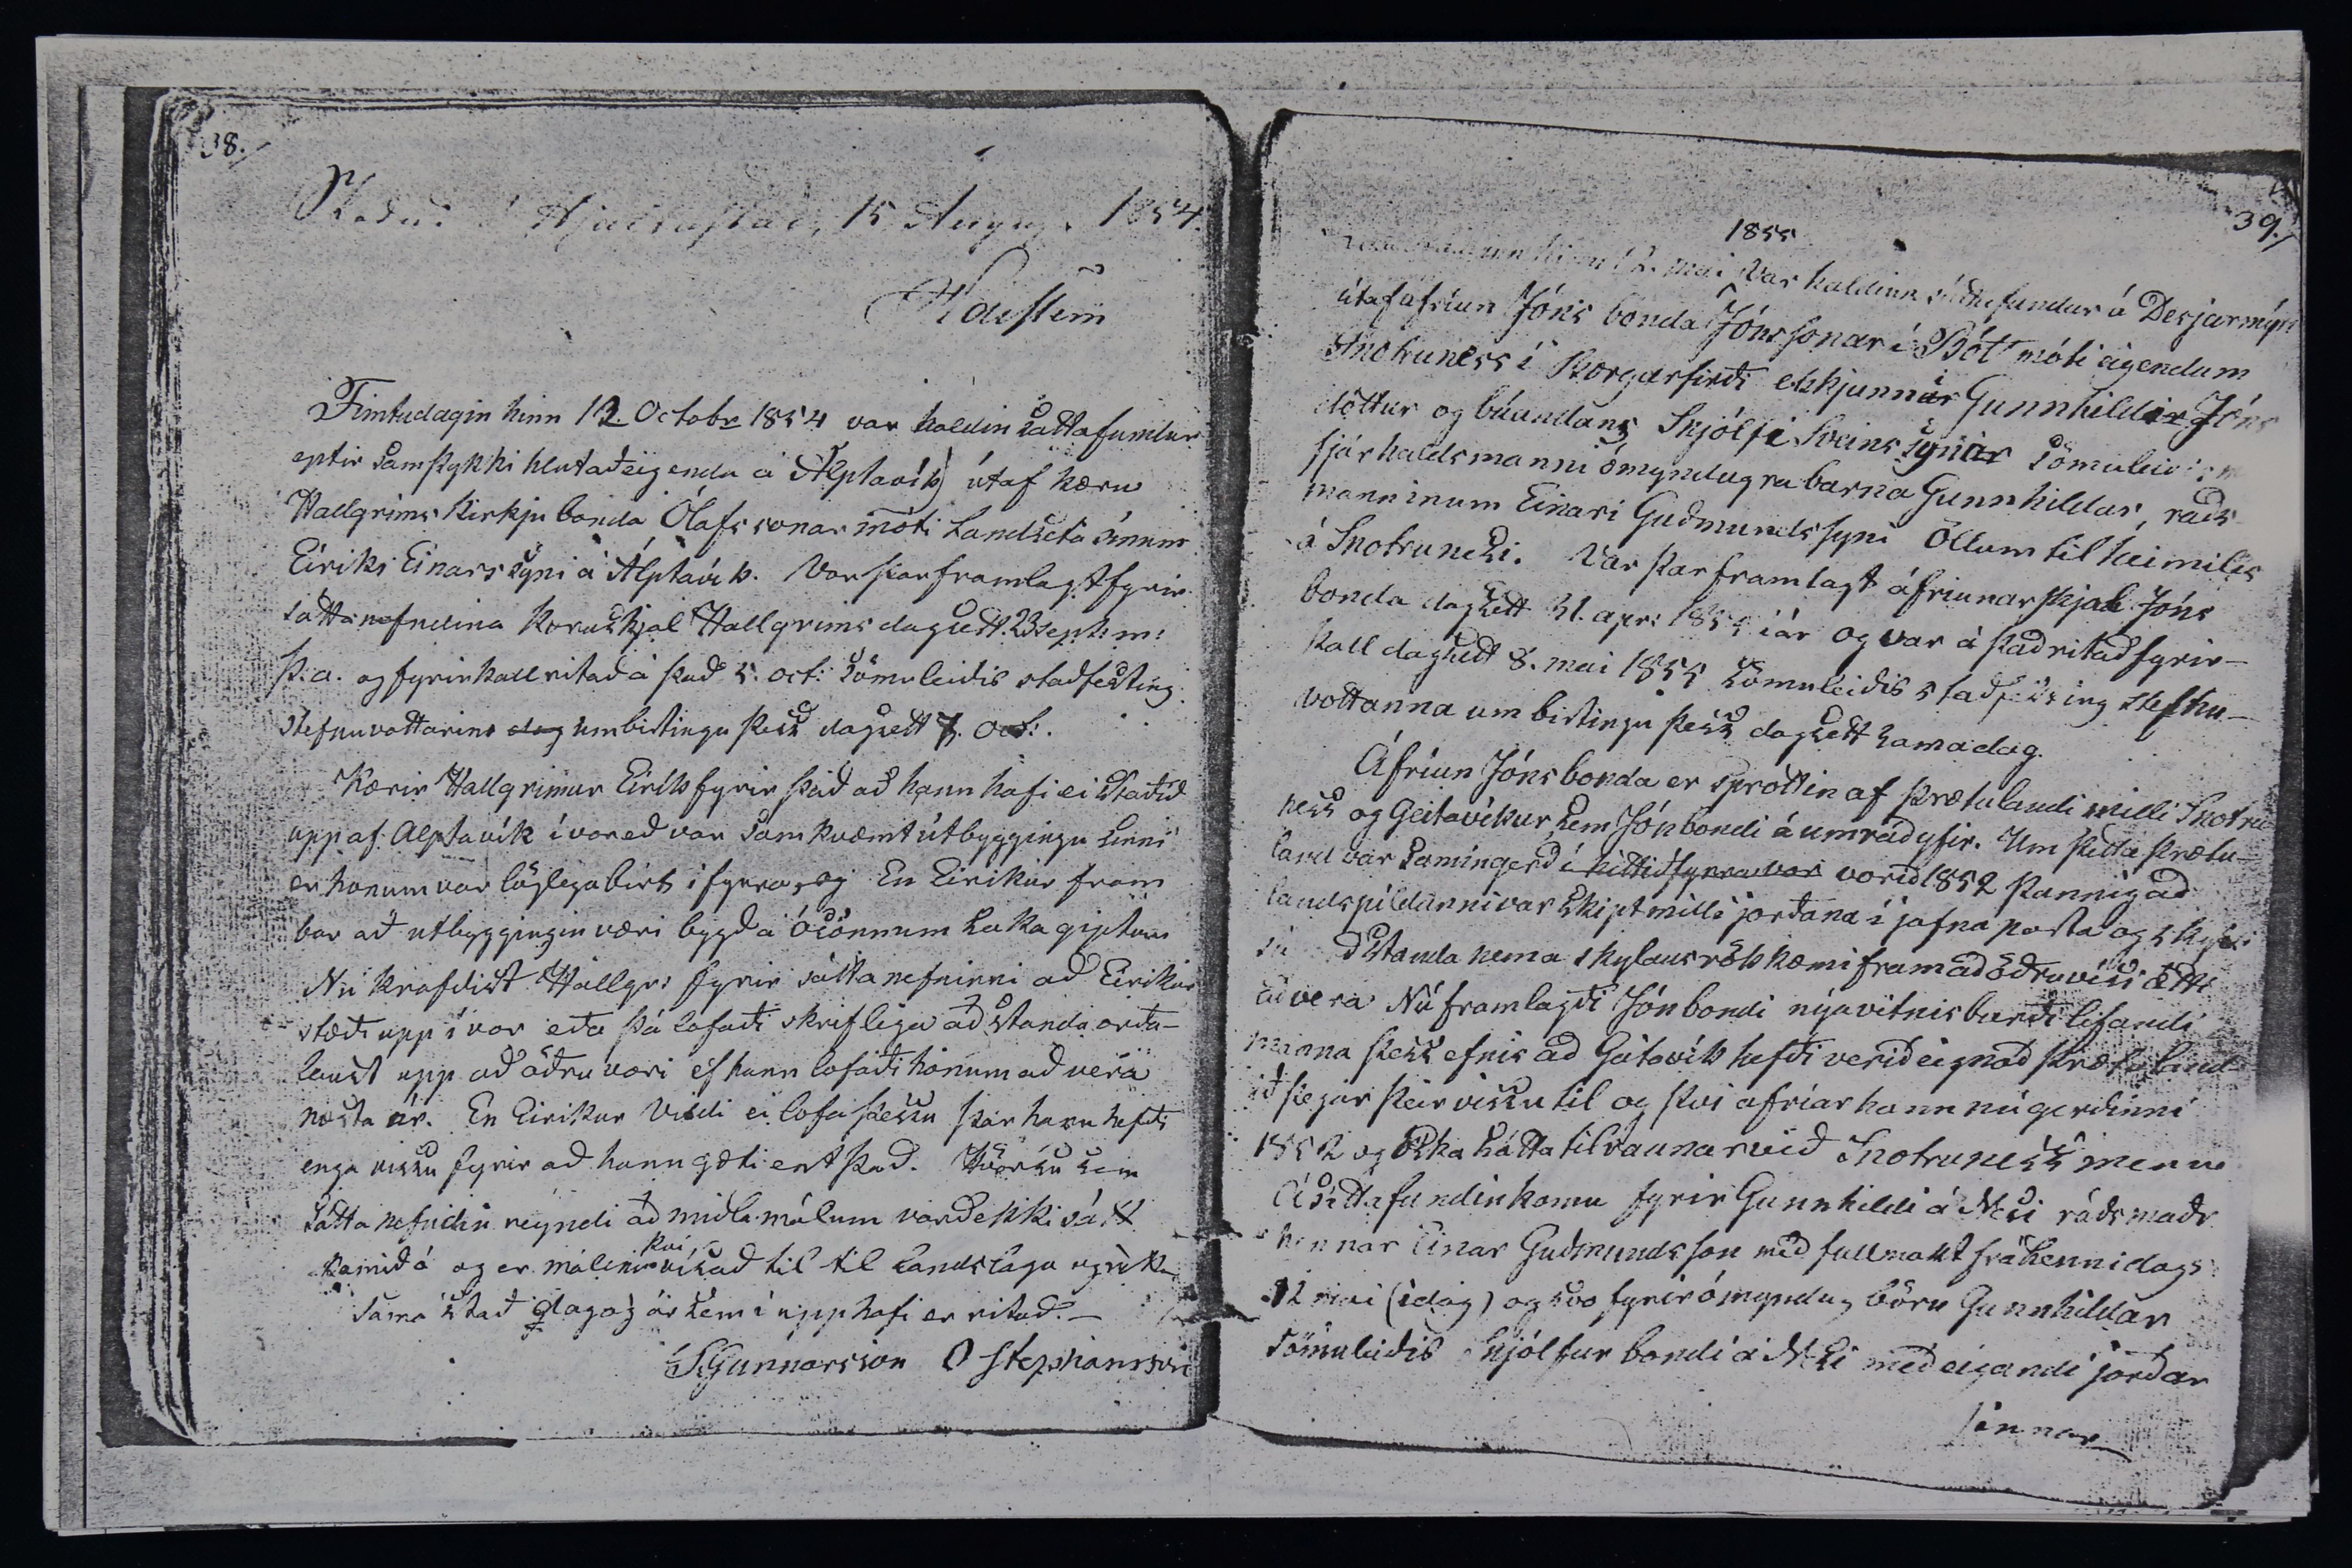 38.
Hjaltastað, 15 August 1854.
Fimtudagin hinn 12 Octobr 1854 var haldin sáttafundur
eptir samþykki hlutaðeigenda á Álptavík útaf kæru
Hallgrims kirkju bonda Ólafssonar móti Landseta sínum
Eiriki Einarssyni á Álptavík. Var þar framlagt fyrir
sáttanefndina kæruskjal Hallgrims dagsett 23 septem:
þ.a. og fyrirkall ritað á það 5. oct: sömuleiðis staðfesting
stefnuvottarins dag um birtingu þess dagsett 7. oct:.
Kærir Hallgrimur Eirik fyrir það að hann hafi ei staðið
upp af Alptavík í vor eð var samkvæmt útbyggingu sinni
er honum var löglega birt i fyrra, og En Eirikur fram
bar að utbyggingin væri bygð á ósönnum saka giptum
Nú krafdist Hallgr: fyrir sáttanefninni að Eirikur
stæði upp í vor eða þá lofaði skriflega að standa orða-
laust upp að öðru vori ef hann lofaði honum að vera
næsta ár. En Eirikur vildi ei lofa þessu þar hann hefði
enga vissu fyrir að hann gæti ent það. Hvörsu sem
Sátta nefndin reyndi að miðla málum varð ekki sátt
komið á og er málinu því vísað til til Landslaga og réttar
sama stað dag og ár sem í upphafi er ritað.—
SGunnarsson OStephansson
39.
1855
hinn 12. mai var haldinn sáttafundur á Desjarmýri
útaf áfríun Jóns bonda Jónssonar í Bót móti eigendum
Snotruness í Borgarfirði ekkjunnar Gunnhildar Jóns
dóttur og búandans Snjólfi Sveinssyniar sömuleiðis
fjárhaldsmanni ómyndugra barna Gunnhildar, ráðs
manninum Einari Guðmundssyni Öllum til heimilis
á Snotrunesi. Var þar framlagt áfriunarskjal Jóns
bonda dagsett 31. apr: 1855 í ár og var á það ritað fyrir-
kall dagsett 8. mai 1855 sömuleiðis staðfesting stefnu-
vottanna um birtingu þess dagsett sama dag.
Áfríun Jóns bonda er sprottin af þrætulandi milli Snotru
ness og Geitavíkur sem Jón bondi á umráð yfir. Um þetta þrætu-
land var samingerð í hittið fyrra vor vorið 1852 þannig að
landspildunni var skipt milli jarðana í jafna parta og skyldi
standa nema skylaus rök kæmi fram að öðruvísi ætti
að vera Nú framlagði Jón bondi nýa vitnisburði lifandi
manna þess efnis að Geitavík hefði verið eignað þrætuland
ið þegar þeir vissu til og því afríar hann nú gerðinni
1852 og æskja sátta tilraunar við Snotruness menn
Á sáttafundin komu fyrir Gunnhildi á Nesi ráðsmaðr
hennar Einar Guðmundsson með fullmakt frá henni dags
12 mai (í dag) og svo fyrir ómyndug börn Gunnhildar
sömuleiðis Snjólfur bondi á Nesi með eigandi jarðar
sinnar